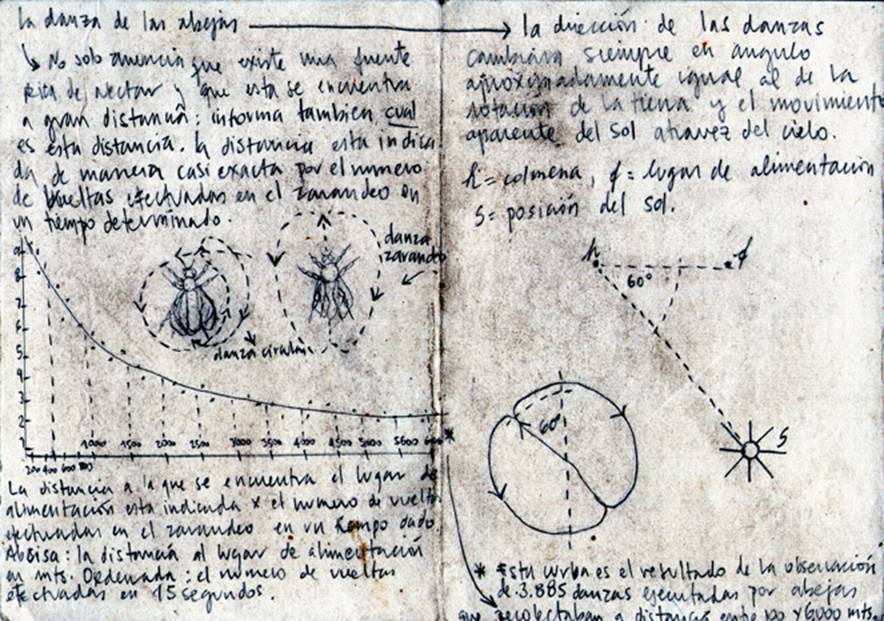 la danza de las abejas
No solo anuncia que existe una fuente
rica de nectar y que esta se encuentra
a gran distancia: informa tambien cual
es esta distancia. la distancia esta indica
da de manera casi exacta por el numero
de vueltas efectuadas en el zarandeo en
un tiempo determinado.
danza
zarandeo
danza circular
9
8
7
6
5
4
3
2
1
1000 1500 2000 2500 3000 3500 4000 4500 5000 5600 6000 *
200 400 600 800
La distancia a la que se encuentra el lugar de
alimentación esta indicada x el numero de vueltas
efectuadas en el zarandeo en un tiempo dado.
Absisa: la distancia al lugar de alimentación
en mts. Ordenada: el numero de vueltas
efectuadas en 15 segundos.
la dirección de las danzas
cambiara siempre en angulo
aproximadamente igual al de la
rotación de la tierra y el movimiento
aparente del sol atravez del cielo.
h = colmena, f = lugar de alimentación
S = posición del sol.
h f
60°
S
60°
* Esta curva es el resultado de la observación
de 3.885 danzas ejecutadas por abejas
que recolectaban a distancia entre 100 y 6000 mts.